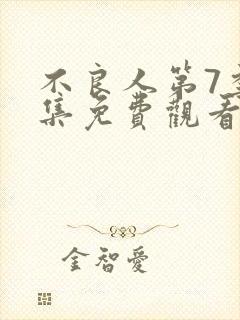 不良人第7
集免費觀看
金智愛